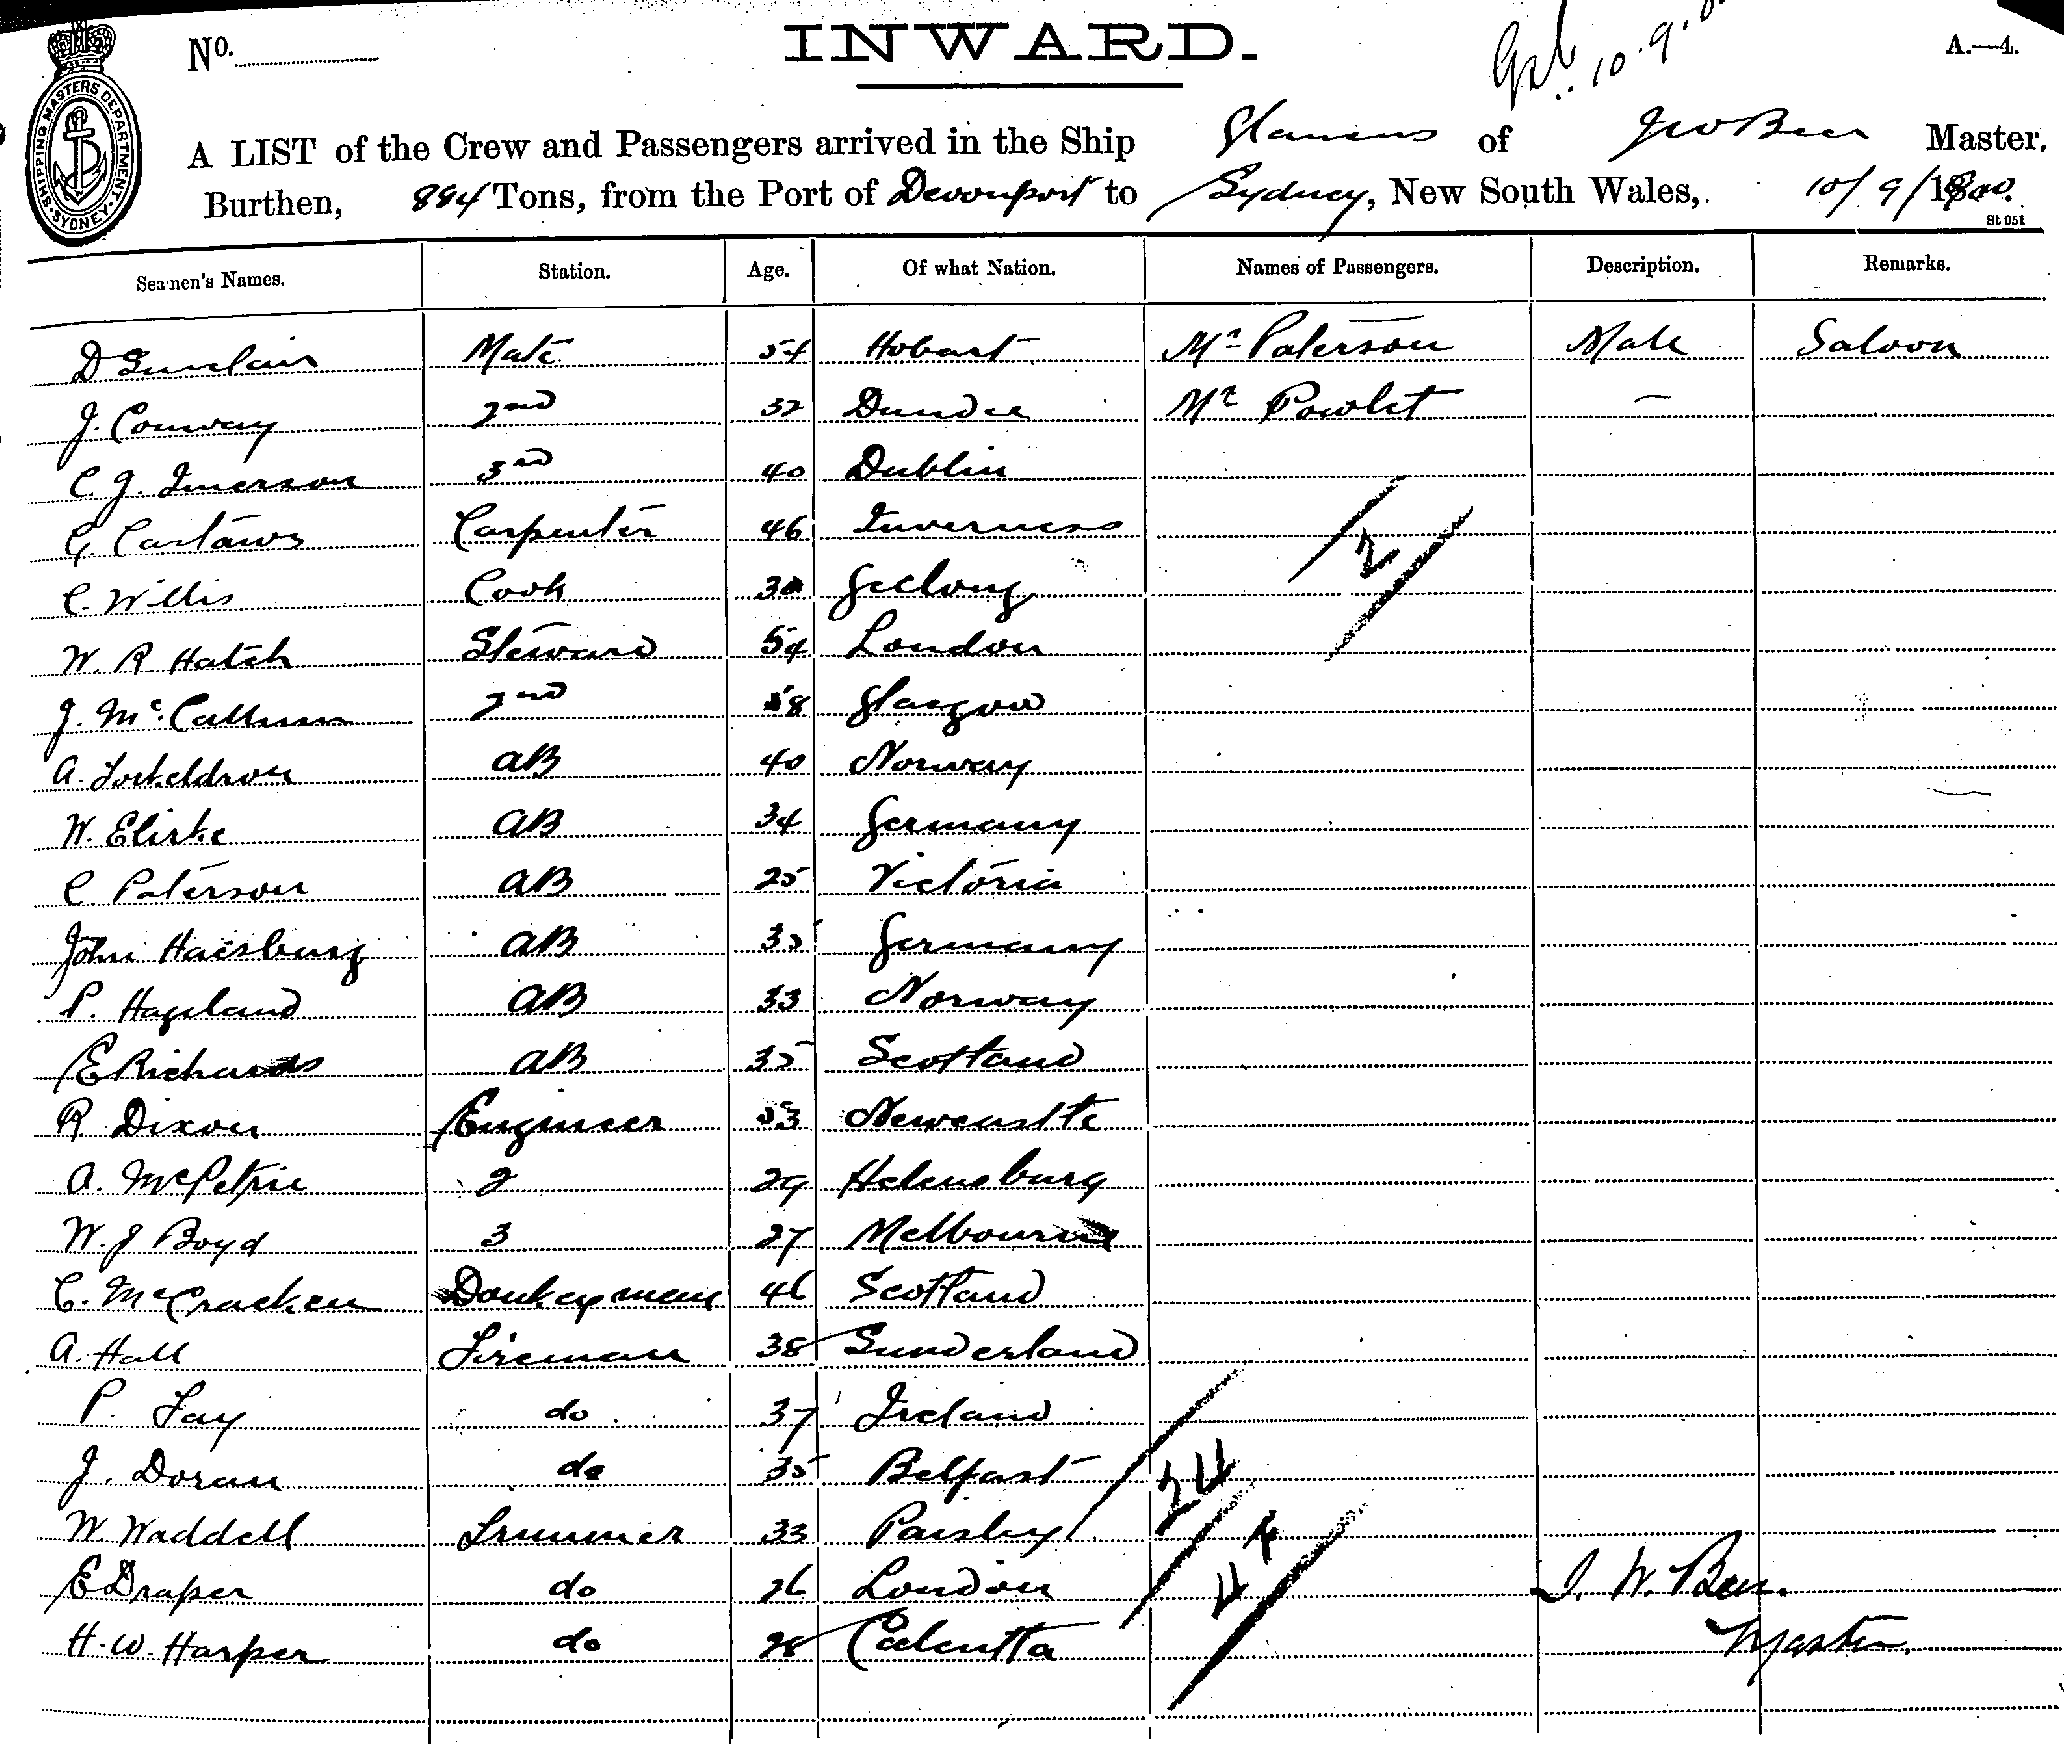 INWARD.
No.
10.9.
A.—4.
SHIPPING MASTERS DEPARTMENT SYDNEY
A LIST of the Crew and Passengers arrived in the Ship Glaucus of J W Beer Master,
Burthen, 884 Tons, from the Port of Devonport to Sydney, New South Wales, 10/9/1900.
St 051
Seamen's Names. Station. Age. Of what Nation. Names of Passengers. Description. Remarks.
D Sinclair Mate 54 Hobart Mr Paterson Male Saloon
J. Conway 2nd 32 Dundee Mr Powlet —
C. J. Imerson 3rd 40 Dublin
Carpenter 46 Inverness
2
C. Willis Cook 30 Geelong
W. R Hatch Steward 54 London
J. McCallum 2nd 58 Glasgow
A. AB 40 Norway
W. Elirke AB 34 Germany
C Paterson AB 25 Victoria
John Haesburg AB 35 Germany
P. Hageland AB 33 Norway
E Richards AB 35 Scotland
R Dixon Engineer 53 Newcastle
A. McPetrie 2 29 Helensburg
W. J Boyd 3 27 Melbourne
C. McCracken Donkeyman 46 Scotland
A. Hall Fireman 38 Sunderland
P. Fay do 37 Ireland
J. Doran do 35 Belfast
24
W. Waddell Trimmer 33 Paisley
E Draper do 26 London J. W. Beer.
H. W. Harper do 28 Calcutta Master.